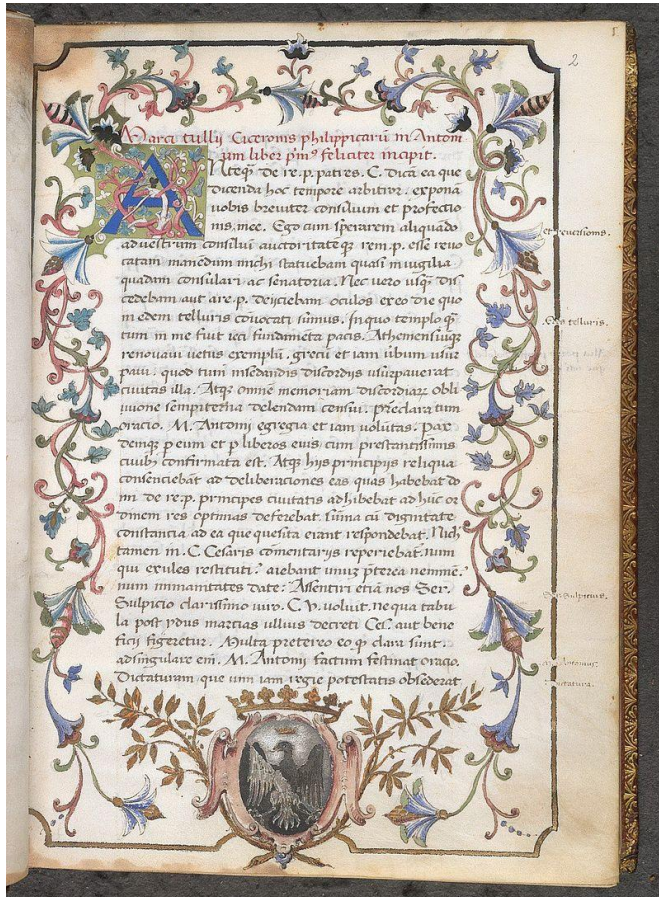 2
Marci tullij Ciceronis philippicarū in Antoni
um liber pm⁹ feliciter incipit.
Nteq̄ de re.p. patres. C. dicā ea que
dicenda hoc tempore arbitror. exponā
uobis breuiter consilium et profectio
nis mee. Ego cum sperarem aliquādo
ad uestrum consiliū auctoritateq̄ rem.p. esse reuo
catam manēdum michi statuebam quasi in uigilia
quadam consulari ac senatoria. Nec uero usq̄ dis
cedebam aut a re.p. deijciebam oculos ex eo die quo
in edem telluris conuocati sumus. In quo templo q̄
tum in me fuit ieci fundamēta pacis. Atheniensiūq̄
renouaui uetus exemplū. grecū et iam ūbum usur
paui. quod tum in sedandis discordijs usurpauerat
ciuitas illa. Atq̄ omnē memoriam discordiaꝝ obli
uione sempiterna delendam censui. preclara tum
oratio. M. Antonij egregia et iam uolūtas. pax
deniq̄ p eum et p liberos eius cum prestantissimis
ciuib; confirmata est. Atq̄ hijs principijs reliqua
consenciebāt ad deliberaciones eas quas habebat do
mi de re.p. principes ciuitatis adhibebat ad hūc or
dinem res optimas deferebat. sūma cū dignitate
constantia ad ea que quesita erant respondebat. Nich
tamen in. C. Cesaris comentarijs reperiebat. num
qui exules restituti? aiebant unuȝ p̄terea neminē.
num immunitates date? Assentiri etiā nos Ser.
Sulpicio clarissimo uiro. C. V. uoluit. ne qua tabu
la post ydus martias ullius decreti Ces. aut bene
ficij figeretur. Multa pretereo eo q̄ clara sunt.
ad singulare em̄. M. Antonij factum festinat oracio.
Dictaturam. que uim iam regie potestatis obsederat
et reuersionis.
telluris.
Ser. Sulpicius.
Antonius.
Dictatura.